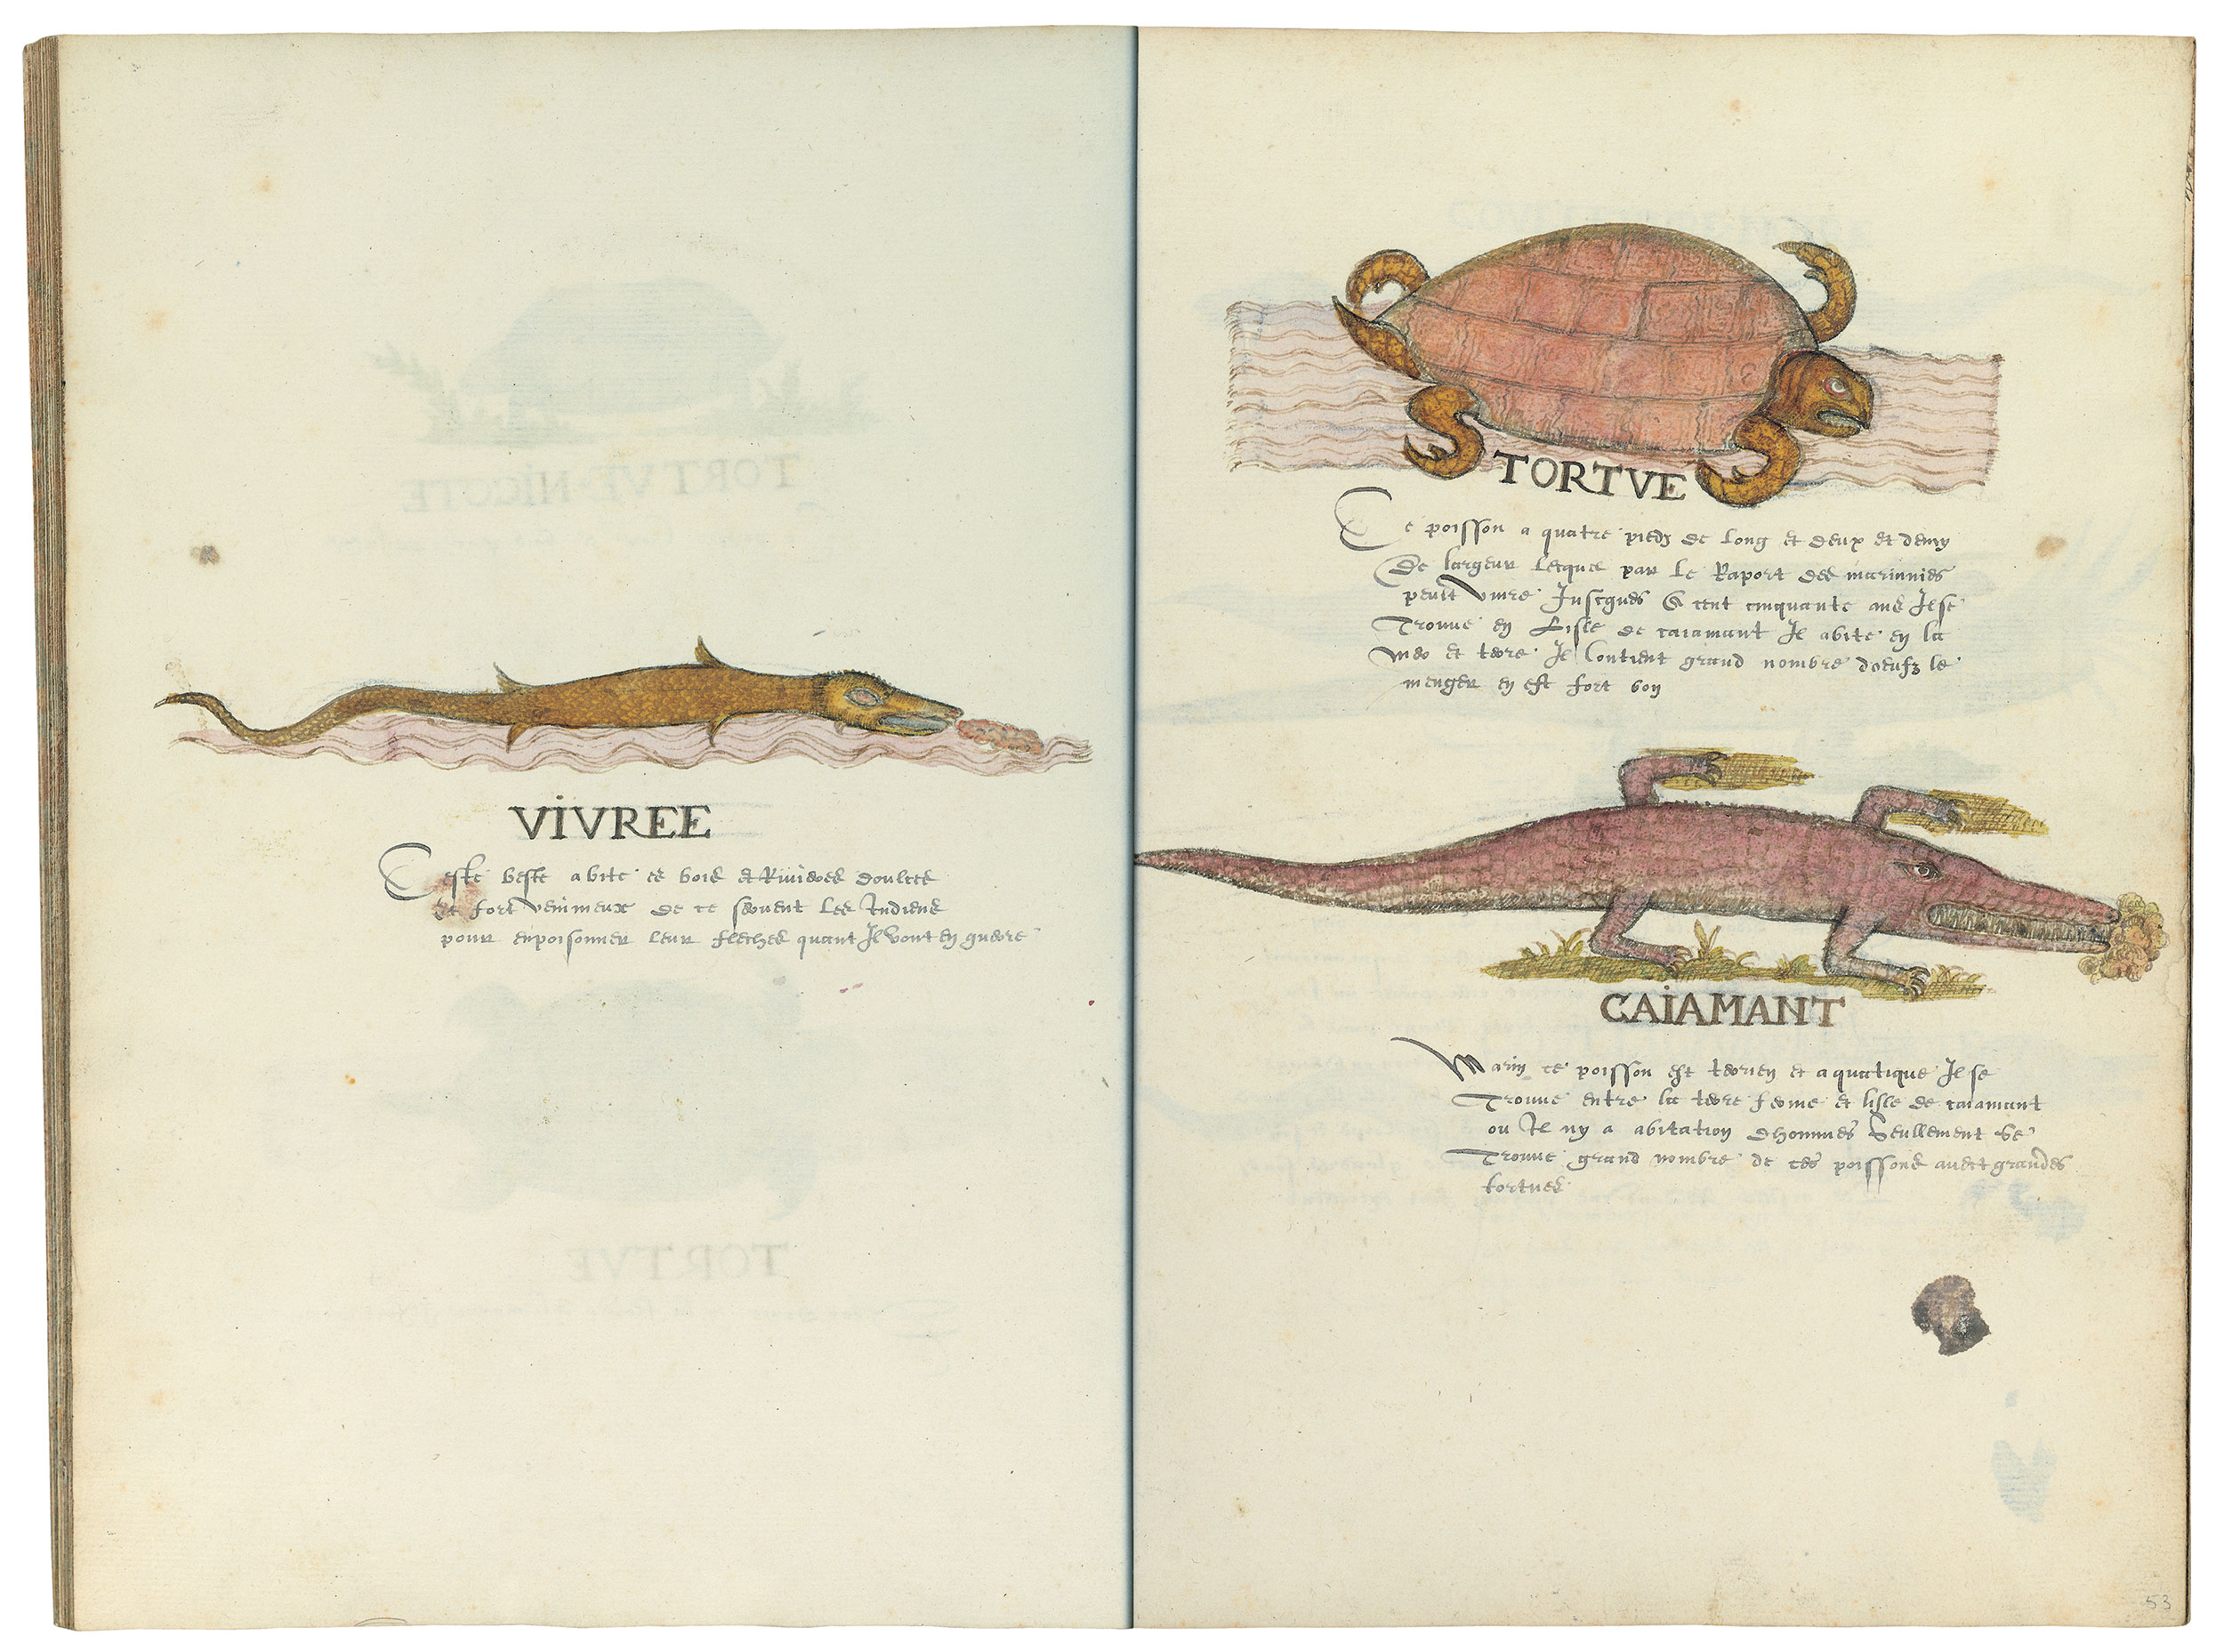 VIVREE
Ceste beste abite es bois et Rivieres doulces
et fort venimeux de ce servent les Indiens
pour enpoisonner leur fleches quant Il vont en guerre
TORTVE
Ce poisson a quatre pieds de long et deux et demy
de largeur lequel par le Raport des mariniers
peult vivre Jusques a cent cinquante ans Il se
Trouve en Lisle de caiamant Il abite en la
mer et terre Il Contient grand nombre doeufz le
menger en est fort bon
CAIAMANT
Marin ce poisson est terrien et aquatique Il se
Trouve entre la terre ferme et lisle de caiamant
ou Il ny a abitation dhommes Seullement Se
Trouve grand nombre de ces poissons avect grandes
tortues
53